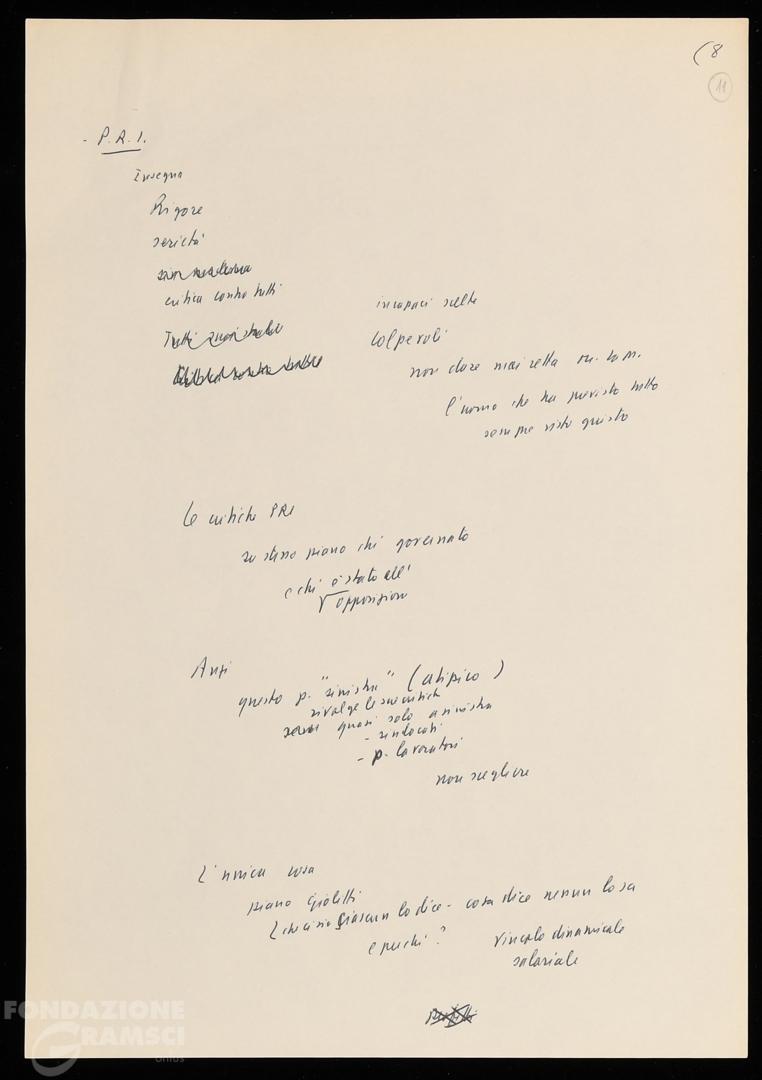 (8
11
- P.R.I.
Insegna
Rigore
serietà
critica contro tutti
incapaci scelte
Tutti
colpevoli
non dare mai retta
l'uomo che ha previsto tutto
sempre visto giusto
Le critiche PRI
su stesso piano chi governato
e chi è stato all'
opposizione
Anzi
questo p. "sinistra" (atipico)
rivolge le sue critiche
quasi solo a sinistra
- sindacati
- p. lavoratori
non scegliere
L'unica cosa
piano Giolitti
ciascun lo dice - cosa dice nessun lo sa
e perché?
vincolo dinamicale
salariale
FONDAZIONE
GRAMSCI
onlus